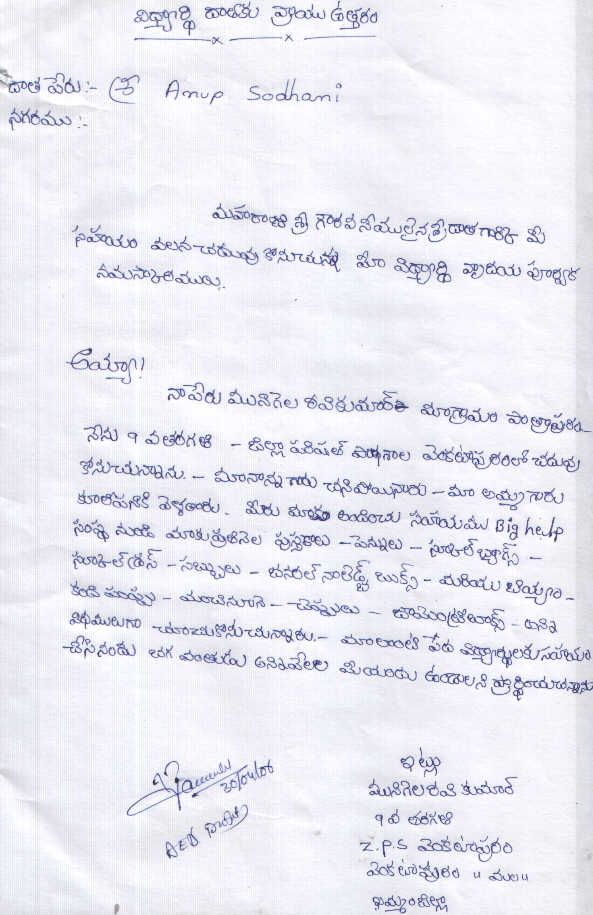 విద్యార్థి దాతకు వ్రాయు ఉత్తరం
దాత పేరు:- శ్రీ Anup Sodhani
నగరము :-
మహారాజశ్రీ గౌరవనీయులైన శ్రీ దాతగారికి మీ
సహాయం వలన చదువు కొనుచున్న మీ విద్యార్థి హృదయ పూర్వక
నమస్కారములు.
అయ్యా!
నాపేరు మునిగెల రవికుమార్ మాగ్రామం పాత్రాపురం
నేను 9 వ తరగతి - జిల్లా పరిషత్ పాఠశాల వెంకటాపురంలో చదువు
కొనుచున్నాను. - మా నాన్న గారు చనిపోయినారు - మా అమ్మ గారు
కూలిపనికి వెళతారు. మీరు మాకు అందించు సహాయము Big help
సంస్థ నుండి మాకు ప్రతినెల పుస్తకాలు - పెన్నులు - స్కూల్ బ్యాగ్స్ -
స్కూల్ డ్రస్ - సబ్బులు - జనరల్ నాలెడ్జ్ బుక్స్ - మరియు బియ్యం -
కంది పప్పు - మంచినూనె - చెప్పులు - జామెంట్రీబాక్స్ - అన్ని
విధములుగా చూచుకొనుచున్నారు. - మాలాంటి పేద విద్యార్థులకు సహాయం
చేసినందు భగవంతుడు అన్నివేళల మీయందు ఉండాలని ప్రార్థించుచున్నాను
ఇట్లు
మునిగెల రవి కుమార్
9 వ తరగతి
Z.P.S వెంకటాపురం
వెంకటాపురం "మం"
ఖమ్మంజిల్లా
30/04/06